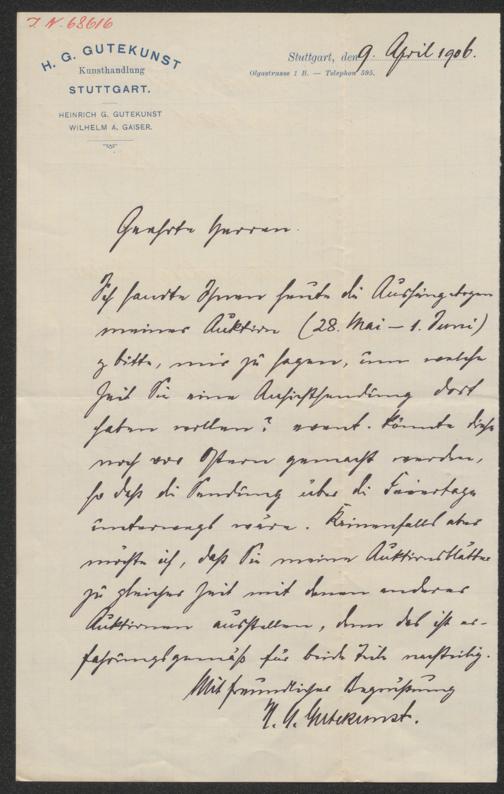 I. N. 68616
H. G. GUTEKUNST
Kunsthandlung
STUTTGART.
HEINRICH G. GUTEKUNST
WILHELM A. GAISER.
Stuttgart, den 9. April 1906.
Olgastrasse 1 B. — Telephon 595.
Geehrte Herren.
Ich sandte Ihnen heute die Aushängebogen
meiner Auktion (28. Mai – 1. Juni)
& bitte, mir zu sagen, um welche
Zeit Sie eine Ansichtsendung dort
haben wollen? event. könnte dies
noch vor Ostern gemacht werden,
so daß die Sendung über die Feiertage
unterwegs wäre. Keinenfalls aber
möchte ich, daß Sie meine Auktionsblätter
zu gleicher Zeit mit denen anderer
Auktionen ausstellen, denn das ist er-
fahrungsgemäß für beide Teile nachteilig.
Mit freundlicher Begrüßung
H. G. Gutekunst.